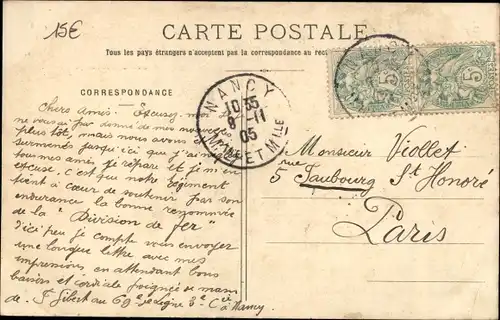 15€
CARTE POSTALE
Tous les pays étrangers n'acceptent pas la correspondance au rec
CORRESPONDANCE
NANCY
10 35
8 - 11
05
MTHE ET MLLE
5
5
Chers amis. Excusez-m
ne vous ai pas donné de mes nouv
plus tôt, mais nous avons
surmenés jusqu'ici que j'ai
tous mes amis. Je répare et je m'en
excuse, c'est que notre régiment
tient à cœur de soutenir par son
endurance la bonne renommée
de la "Division de fer"
D'ici peu je compte vous envoyer
une longue lettre avec mes
impressions, en attendant bons
baisers et cordiale poignée de main
de. F. Gibert au 69e de Ligne 8e Cie à Nancy
Monsieur Viollet
5 rue Faubourg St Honoré
Paris